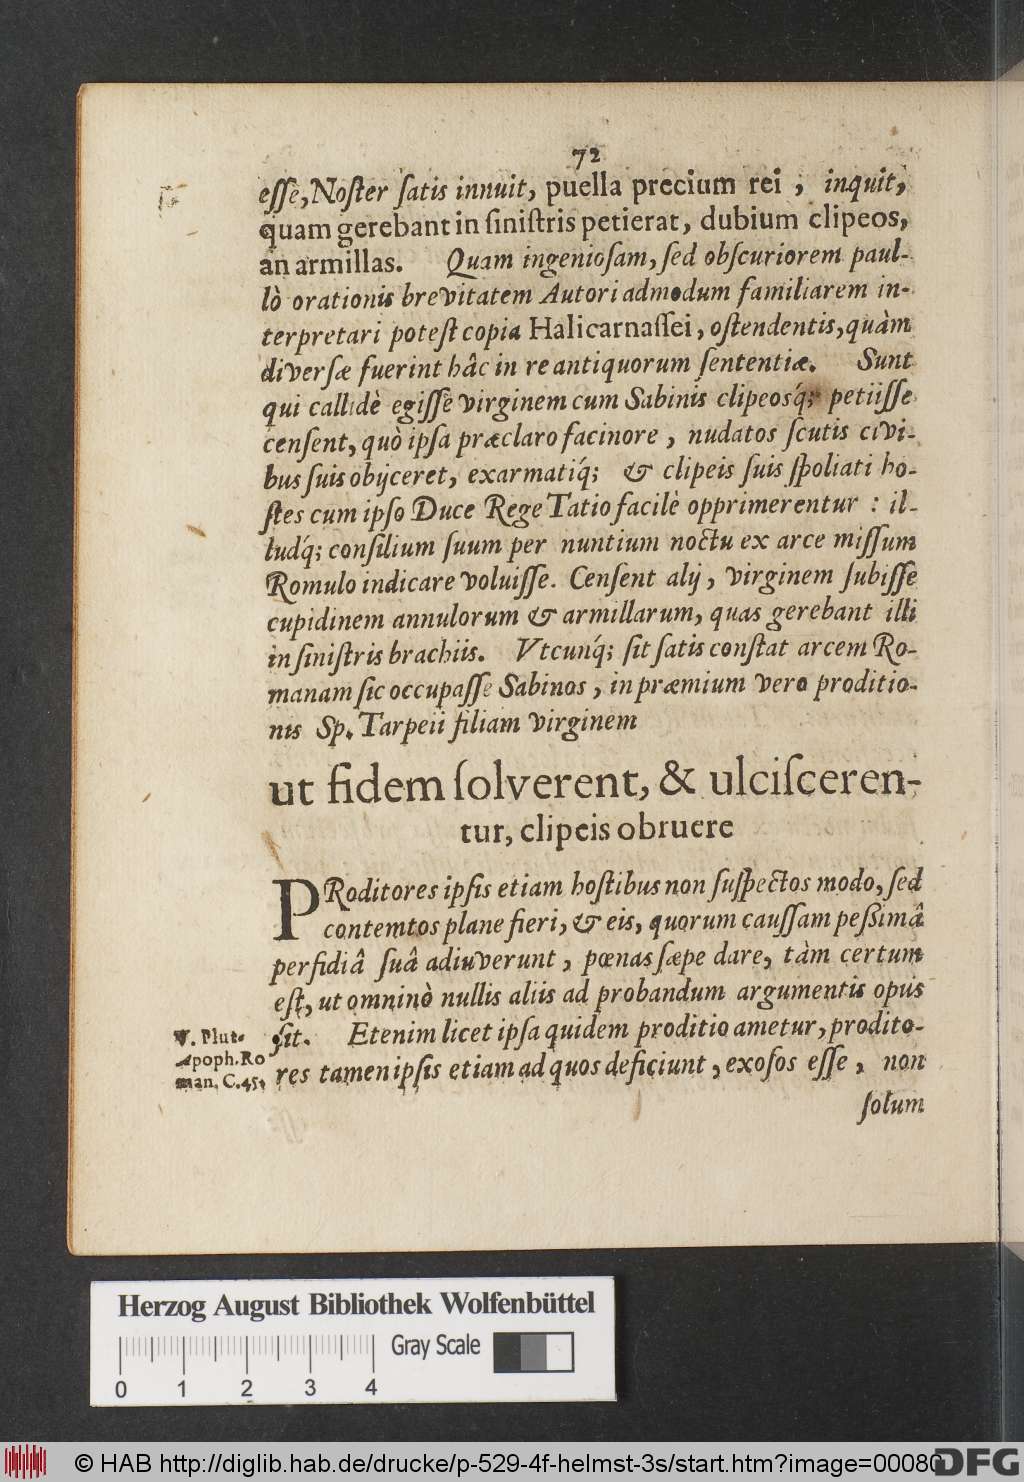 72
eſſe, Noſter ſatis innuit, puella precium rei, inquit,
quam gerebant in ſiniſtris petierat, dubium clipeos,
an armillas. Quam ingenioſam, ſed obſcuriorem paul-
lò orationis brevitatem Autori admodum familiarem in-
terpretari poteſt copia Halicarnaſſei, oſtendentis, quàm
diverſæ fuerint hâc in re antiquorum ſententiæ. Sunt
qui callidè egiſſe virginem cum Sabinis clipeosq́; petiiſſe
cenſent, quò ipſa præclaro facinore, nudatos ſcutis civi-
bus ſuis obijceret, exarmatiq́; & clipeis ſuis ſpoliati ho-
ſtes cum ipſo Duce Rege Tatio facilè opprimerentur: il-
ludq́; conſilium ſuum per nuntium noctu ex arce miſſum
Romulo indicare voluiſſe. Cenſent alij, virginem ſubiſſe
cupidinem annulorum & armillarum, quas gerebant illi
in ſiniſtris brachiis. Vtcunq́; ſit ſatis conſtat arcem Ro-
manam ſic occupaſſe Sabinos, in præmium vero proditio-
nis Sp. Tarpeii filiam virginem
ut fidem ſolverent, & ulciſceren-
tur, clipeis obruere
PRoditores ipſis etiam hoſtibus non ſuſpectos modo, ſed
contemtos plane fieri, & eis, quorum cauſſam peſſimâ
perfidiâ ſuâ adiuverunt, pœnas ſæpe dare, tàm certum
eſt, ut omninò nullis aliis ad probandum argumentis opus
ſit. Etenim licet ipſa quidem proditio ametur, prodito-
res tamen ipſis etiam ad quos deficiunt, exoſos eſſe, non
ſolum
V. Plut.
Apoph. Ro
man. C. 45.
Herzog August Bibliothek Wolfenbüttel
Gray Scale
0 1 2 3 4
© HAB http://diglib.hab.de/drucke/p-529-4f-helmst-3s/start.htm?image=00080
DFG